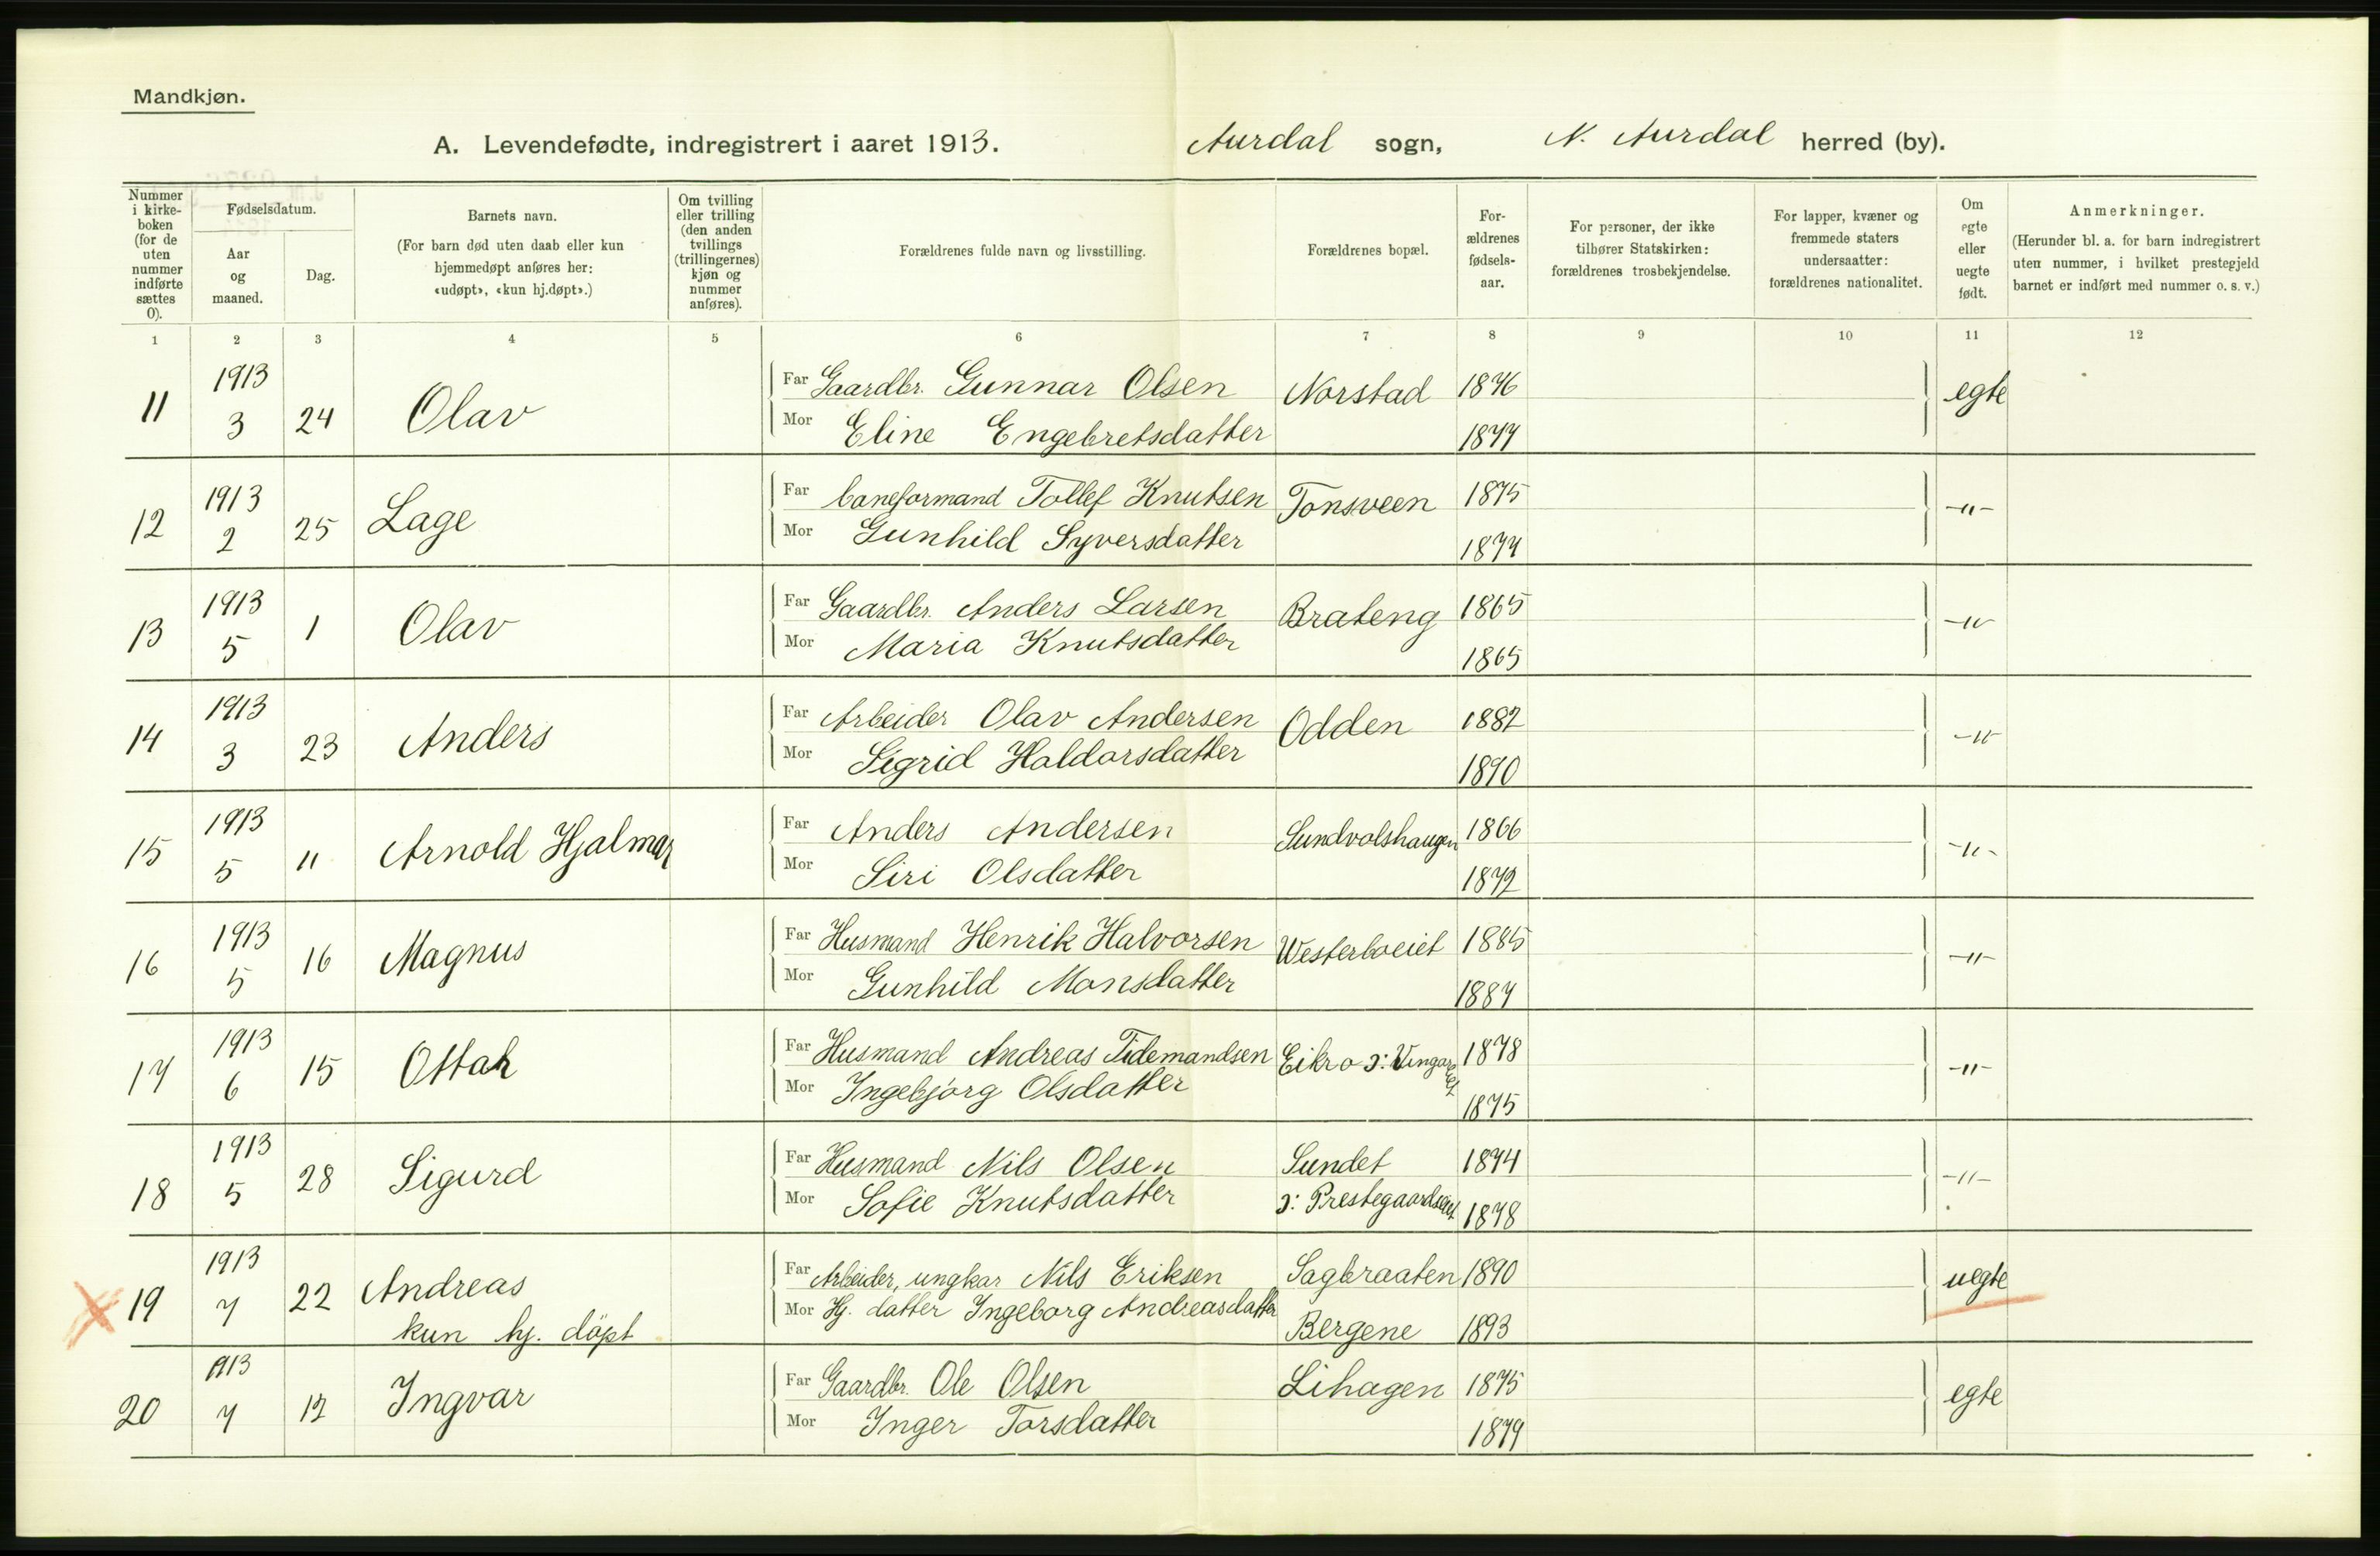 Mandkjøn.
A. Levendefødte, indregistrert i aaret 1913. Aurdal sogn, N. Aurdal herred (by).
Nummer i kirke-boken (for de uten nummer indførte sættes 0).
Fødselsdatum.
Aar og maaned.
Dag.
Barnets navn.
(For barn død uten daab eller kun hjemmedøpt anføres her: «udøpt», «kun hj.døpt».)
Om tvilling eller trilling (den anden tvillings (trillingernes) kjøn og nummer anføres).
Forældrenes fulde navn og livsstilling.
Forældrenes bopæl.
For-ældrenes fødsels-aar.
For personer, der ikke tilhører Statskirken: forældrenes trosbekjendelse.
For lapper, kvæner og fremmede staters undersaatter: forældrenes nationalitet.
Om egte eller uegte født.
Anmerkninger.
(Herunder bl. a. for barn indregistrert uten nummer, i hvilket prestegjeld barnet er indført med nummer o. s. v.)
1 2 3 4 5 6 7 8 9 10 11 12
11 1913 3 24 Olav Far Gaardbr. Gunnar Olsen Norstad 1876 egte
Mor Eline Engebretsdatter 1877
12 1913 2 25 Lage Far baneformand Tollef Knutsen Tonsveen 1875 -"-
Mor Gunhild Syversdatter 1877
13 1913 5 1 Olav Far Gaardbr. Anders Larsen Brateng 1865 -"-
Mor Maria Knutsdatter 1865
14 1913 3 23 Anders Far Arbeider Olav Andersen Odden 1882 -"-
Mor Sigrid Haldorsdatter 1890
15 1913 5 11 Arnold Hjalmar Far Anders Andersen Sundvolshaugen 1866 -"-
Mor Siri Olsdatter 1872
16 1913 5 16 Magnus Far Husmand Henrik Halvorsen Westerboeiet 1885 -"-
Mor Gunhild Monsdatter 1887
17 1913 6 15 Ottar Far Husmand Andreas Tidemandsen Eikro ɔ: Vingareiet 1878 -"-
Mor Ingebjörg Olsdatter 1875
18 1913 5 28 Sigurd Far Husmand Nils Olsen Sundet 1874 -"-
Mor Sofie Knutsdatter ɔ: Prestegaardseiet 1878
19 1913 7 22 Andreas Far Arbeider, ungkar Nils Eriksen Sagbraaten 1890 uegte
kun hj. döpt Mor Hj. datter Ingeborg Andreasdatter Bergene 1893
20 1913 7 12 Ingvar Far Gaardbr. Ole Olsen Lihagen 1875 egte
Mor Inger Torsdatter 1879